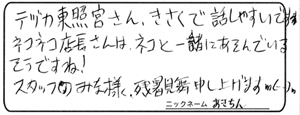 テヅカ東照宮さん、きさくで話しやすいですね
ネコネコ店長さんは、ネコと一緒にあそんでいる
そうですね!
スタッフのみな様、残暑見舞申し上げますm(_ _)m
ニックネーム あきちん